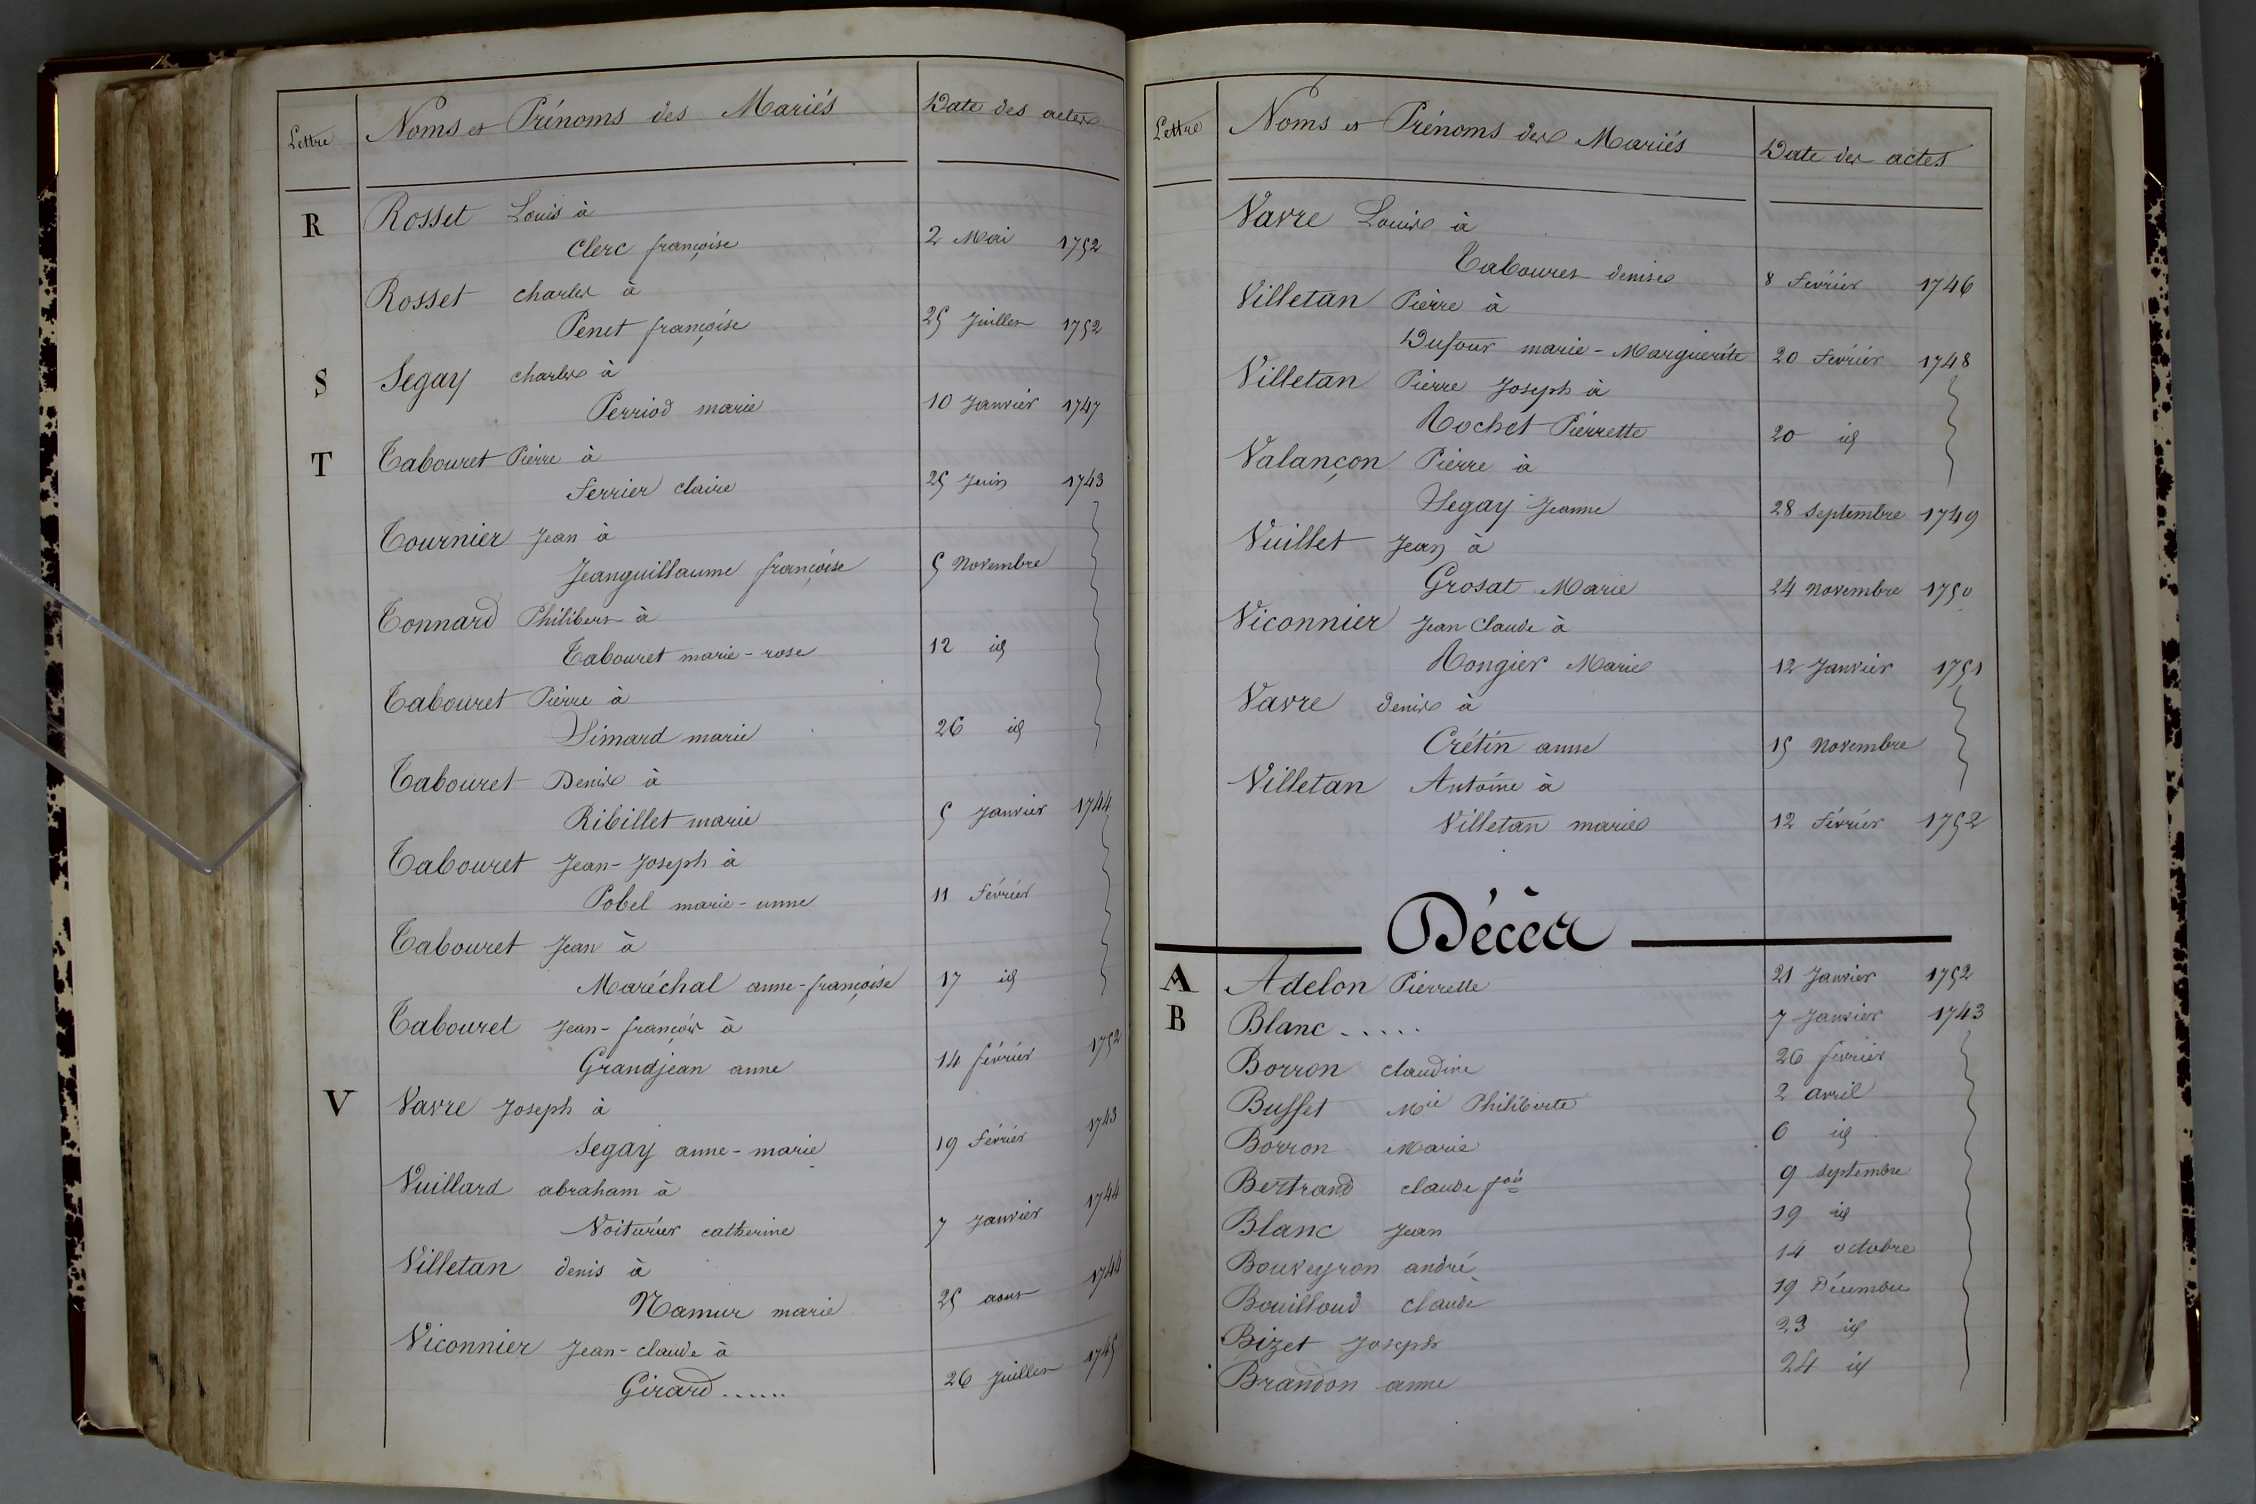 Lettre Noms et Prénoms des Mariés Date des actes
R Rosset Louis à
Clerc françoise 2 Mai 1752
Rosset charles à
Penet françoise 25 Juillet 1752
S Segay charles à
Perriod marie 10 Janvier 1747
T Tabouret Pierre à
Ferrier claire 25 Juin 1743
Tournier Jean à
Jeanguillaume françoise 5 Novembre
Tonnard Philibert à
Tabouret marie-rose 12 id
Tabouret Pierre à
Simard marie 26 id
Tabouret Denis à
Ribillet marie 5 Janvier 1744
Tabouret Jean-Joseph à
Pobel marie-anne 11 Février
Tabouret Jean à
Maréchal anne-françoise 17 id
Tabouret Jean-françois à
Grandjean anne 14 février 1752
V Vavre Joseph à
Segay anne-marie 19 Février 1743
Vuillard abraham à
Voiturier catherine 7 Janvier 1744
Villetan denis à
Namur marie 25 aout 1744
Viconnier Jean-claude à
Girard...... 26 Juillet 1745
Lettre Noms et Prénoms des Mariés Date des actes
Vavre Louis à
Tabouret denise 8 Février 1746
Villetan Pierre à
Dufour marie-Marguerite 20 Février 1748
Villetan Pierre Joseph à
Rochet Pierrette 20 id
Valançon Pierre à
Segay Jeanne 28 Septembre 1749
Vuillet Jean à
Grosat Marie 24 Novembre 1750
Viconnier Jean Claude à
Rongier Marie 12 Janvier 1751
Vavre denis à
Crétin anne 15 Novembre
Villetan Antoine à
Villetan marie 12 Février 1752
Décès
A Adelon Pierrette 21 Janvier 1752
B Blanc..... 7 Janvier 1743
Borron claudine 26 février
Buffet Mie Philiberte 2 avril
Borron Marie 6 id
Bertrand claude fois 9 Septembre
Blanc Jean 19 id
Bouveyron andré 14 octobre
Bouilloud claude 19 Décembre
Bizet Joseph 23 id
Brandon anne 24 id